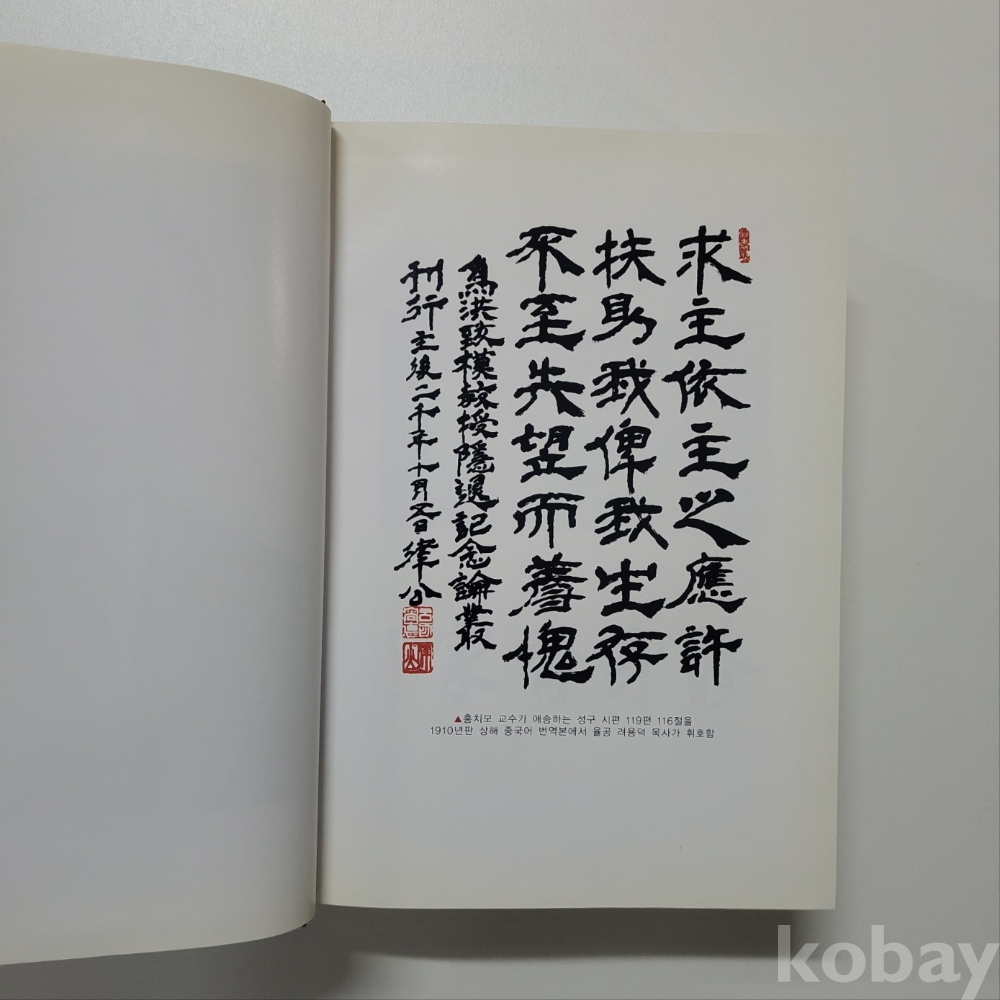 求主依主之應許
扶助我俾我生存
不至失望而羞愧
爲洪致模教授隱退記念論叢
刊行主後二千年十月日 律公
▲홍치모 교수가 애송하는 성구 시편 119편 116절을
1910년판 상해 중국어 번역본에서 율공 려용덕 목사가 휘호함
kobay